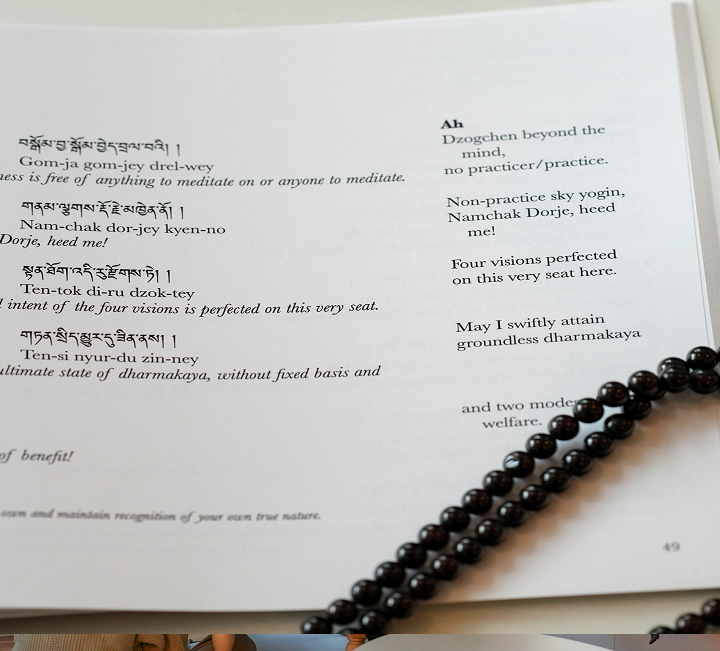 བསྒོམ་བྱ་སྒོམ་བྱེད་བྲལ་བའི། །
Gom-ja gom-jey drel-wey
ness is free of anything to meditate on or anyone to meditate.
གནམ་ལྕགས་རྡོ་རྗེ་མཁྱེན་ནོ། །
Nam-chak dor-jey kyen-no
Dorje, heed me!
སྟན་ཐོག་འདི་རུ་རྫོགས་ཏེ། །
Ten-tok di-ru dzok-tey
intent of the four visions is perfected on this very seat.
གཏན་སྲིད་མྱུར་དུ་ཟིན་ནས། །
Ten-si nyur-du zin-ney
ultimate state of dharmakaya, without fixed basis and
of benefit!
own and maintain recognition of your own true nature.
Ah
Dzogchen beyond the
mind,
no practicer/practice.
Non-practice sky yogin,
Namchak Dorje, heed
me!
Four visions perfected
on this very seat here.
May I swiftly attain
groundless dharmakaya
and two modes
welfare.
49